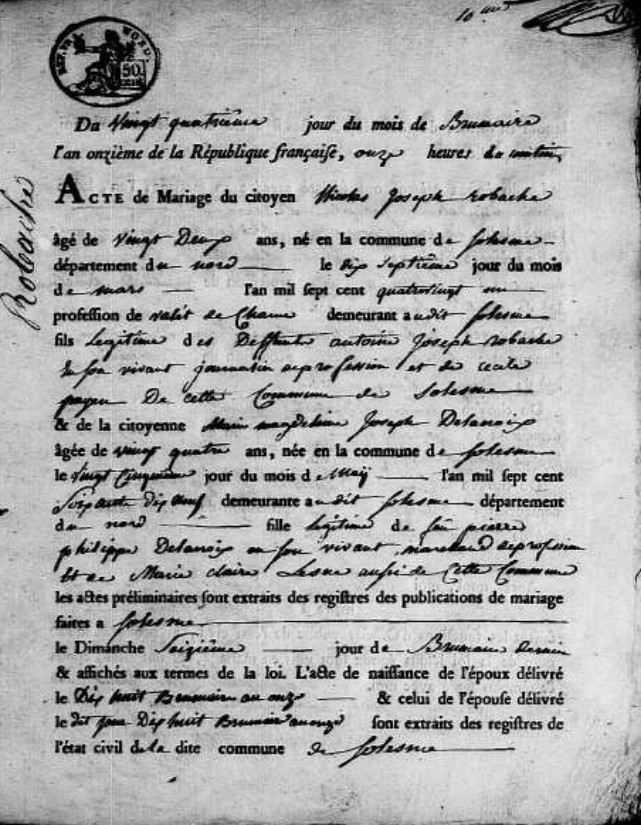 10
REP. FRA. NORD.
50
CENT.
Robache
Du Vingt quatrieme jour du mois de Brumaire
l'an onzième de la République française, onze heures du matin
ACTE de Mariage du citoyen Nicolas Joseph robache
âgé de vingt Deux ans, né en la commune de Solesme
département du nord le dix Septieme jour du mois
de mars l'an mil sept cent quatrevingt un
profession de valet de Charue demeurant audit Solesme
fils Legitime des Deffunts antoine Joseph robache
En son vivant journalier de profession et de cecile
payen De cette Commune de Solesme
& de la citoyenne Marie magdeleine Joseph Delanoix
âgée de vingt quatre ans, née en la commune de Solesme
le Vingt Cinquieme jour du mois de Maÿ l'an mil sept cent
Soixante dix neuf demeurante audit Solesme département
du nord fille legitime de feu pierre
philippe Delanoix en son vivant marchand de profession
Et de Marie claire Lesne aussi de Cette Commune
les actes préliminaires sont extraits des registres des publications de mariage
faites a Solesme
le Dimanche Seizième jour de Brumaire dernier
& affichés aux termes de la loi. L'acte de naissance de l'époux délivré
le Dix huit Brumaire an onze & celui de l'épouse délivré
le dit jour Dix huit Brumaire an onze sont extraits des registres de
l'état civil de la dite commune de Solesme